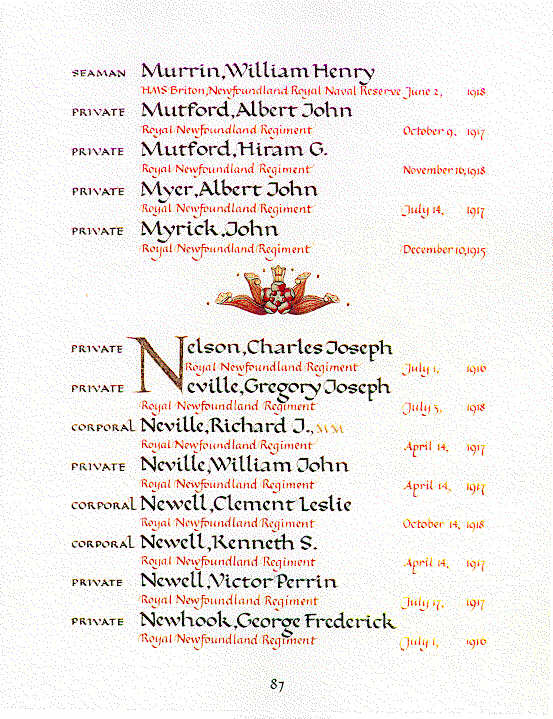 SEAMAN Murrin, William Henry
HMS Briton, Newfoundland Royal Naval Reserve June 2, 1918
PRIVATE Mutford, Albert John
Royal Newfoundland Regiment October 9, 1917
PRIVATE Mutford, Hiram G.
Royal Newfoundland Regiment November 16, 1918
PRIVATE Myer, Albert John
Royal Newfoundland Regiment July 14, 1917
PRIVATE Myrick, John
Royal Newfoundland Regiment December 10, 1915
PRIVATE Nelson, Charles Joseph
Royal Newfoundland Regiment July 1, 1916
PRIVATE Neville, Gregory Joseph
Royal Newfoundland Regiment July 5, 1918
CORPORAL Neville, Richard J., MM
Royal Newfoundland Regiment April 14, 1917
PRIVATE Neville, William John
Royal Newfoundland Regiment April 14, 1917
CORPORAL Newell, Clement Leslie
Royal Newfoundland Regiment October 14, 1918
CORPORAL Newell, Kenneth S.
Royal Newfoundland Regiment April 14, 1917
PRIVATE Newell, Victor Perrin
Royal Newfoundland Regiment July 17, 1917
PRIVATE Newhook, George Frederick
Royal Newfoundland Regiment July 1, 1916
87